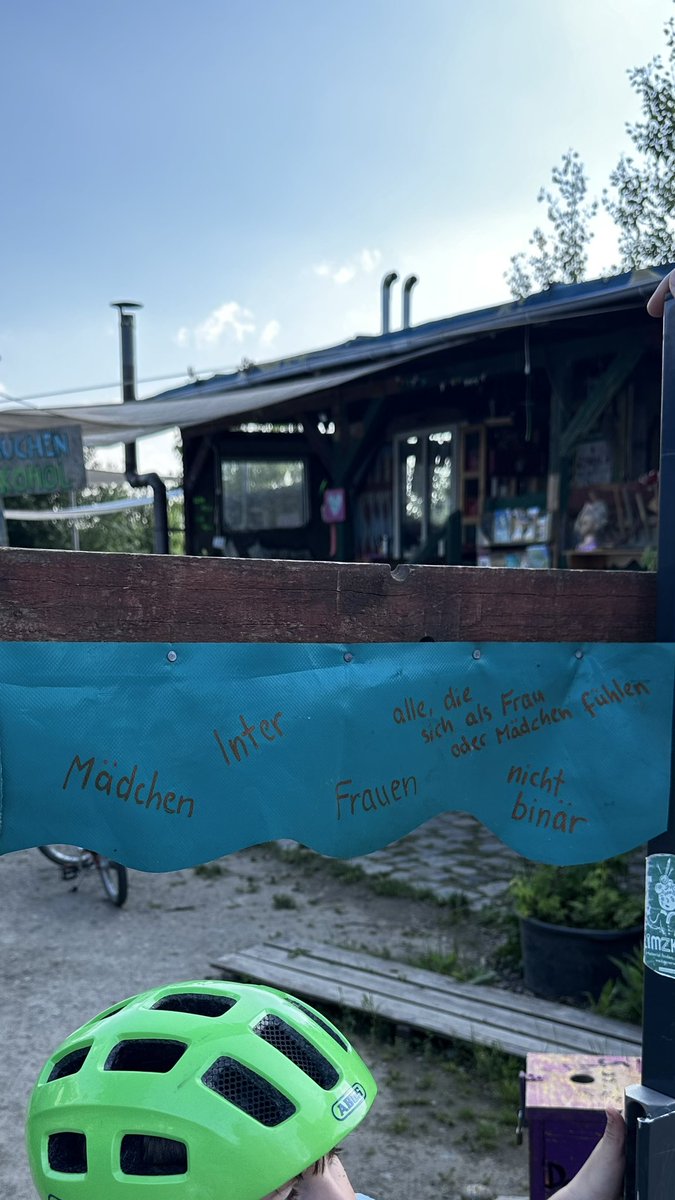 alle, die
sich als Frau
oder Mädchen fühlen
Inter
Mädchen
Frauen
nicht
binär
ABUS